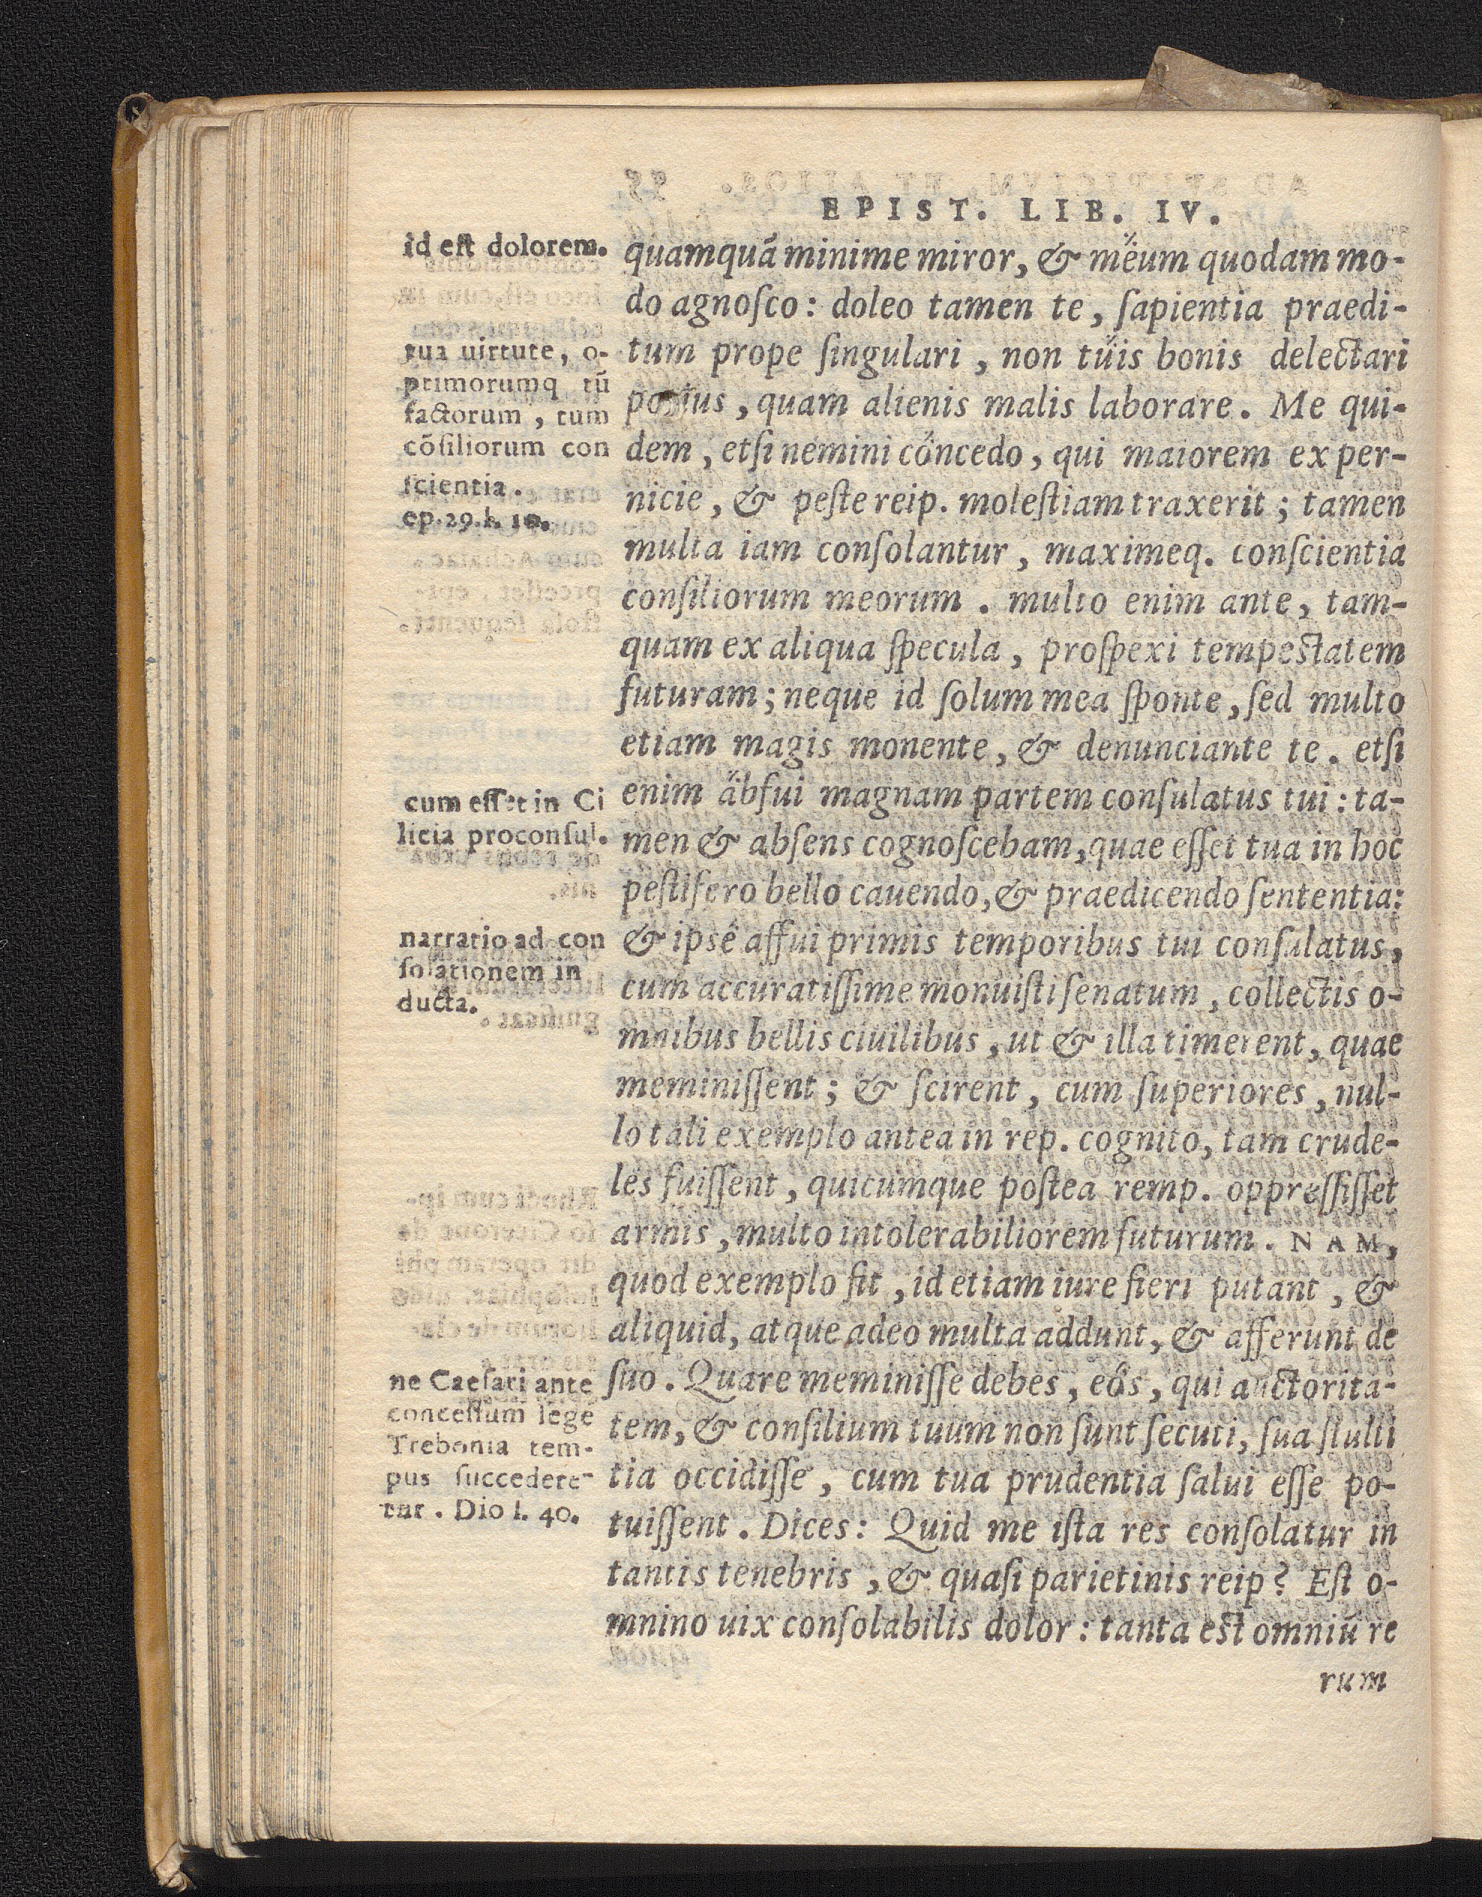 EPIST. LIB. IV.
id est dolorem.
tua uirtute, o-
ptimorumq tū
factorum, tum
cōsiliorum con
scientia.
ep. 29. l. 10.
cum esset in Ci
licia proconsul.
narratio ad con
solationem in
ducta.
ne Caesari ante
concessum lege
Trebonia tem-
pus succedere-
tur. Dio l. 40.
quamquā minime miror, & meum quodam mo-
do agnosco: doleo tamen te, sapientia praedi-
tum prope singulari, non tuis bonis delectari
potius, quam alienis malis laborare. Me qui-
dem, etsi nemini concedo, qui maiorem ex per-
nicie, & peste reip. molestiam traxerit; tamen
multa iam consolantur, maximeq. conscientia
consiliorum meorum. multo enim ante, tam-
quam ex aliqua specula, prospexi tempestatem
futuram; neque id solum mea sponte, sed multo
etiam magis monente, & denunciante te. etsi
enim abfui magnam partem consulatus tui: ta-
men & absens cognoscebam, quae esset tua in hoc
pestifero bello cauendo, & praedicendo sententia:
& ipse affui primis temporibus tui consulatus,
cum accuratissime monuisti senatum, collectis o-
mnibus bellis ciuilibus, ut & illa timerent, quae
meminissent; & scirent, cum superiores, nul-
lo tali exemplo antea in rep. cognito, tam crude-
les fuissent, quicumque postea remp. oppressisset
armis, multo intolerabiliorem futurum. NAM,
quod exemplo fit, id etiam iure fieri putant, &
aliquid, atque adeo multa addunt, & afferunt de
suo. Quare meminisse debes, eos, qui auctorita-
tem, & consilium tuum non sunt secuti, sua stulti
tia occidisse, cum tua prudentia salui esse po-
tuissent. Dices: Quid me ista res consolatur in
tantis tenebris, & quasi parietinis reip? Est o-
mnino uix consolabilis dolor: tanta est omniū re
rum